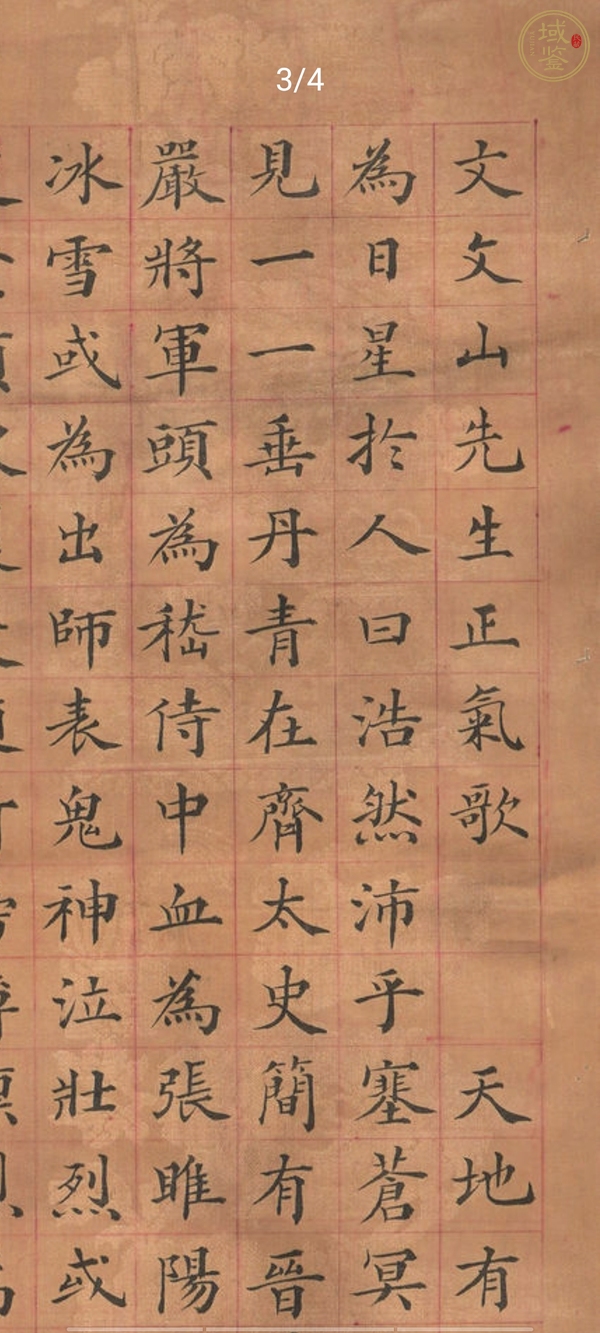 域鉴
3/4
文文山先生正氣歌 天地有
為日星於人曰浩然沛乎塞蒼冥
見一一垂丹青在齊太史簡有晉
嚴將軍頭為嵇侍中血為張睢陽
冰雪或為出師表鬼神泣壯烈或